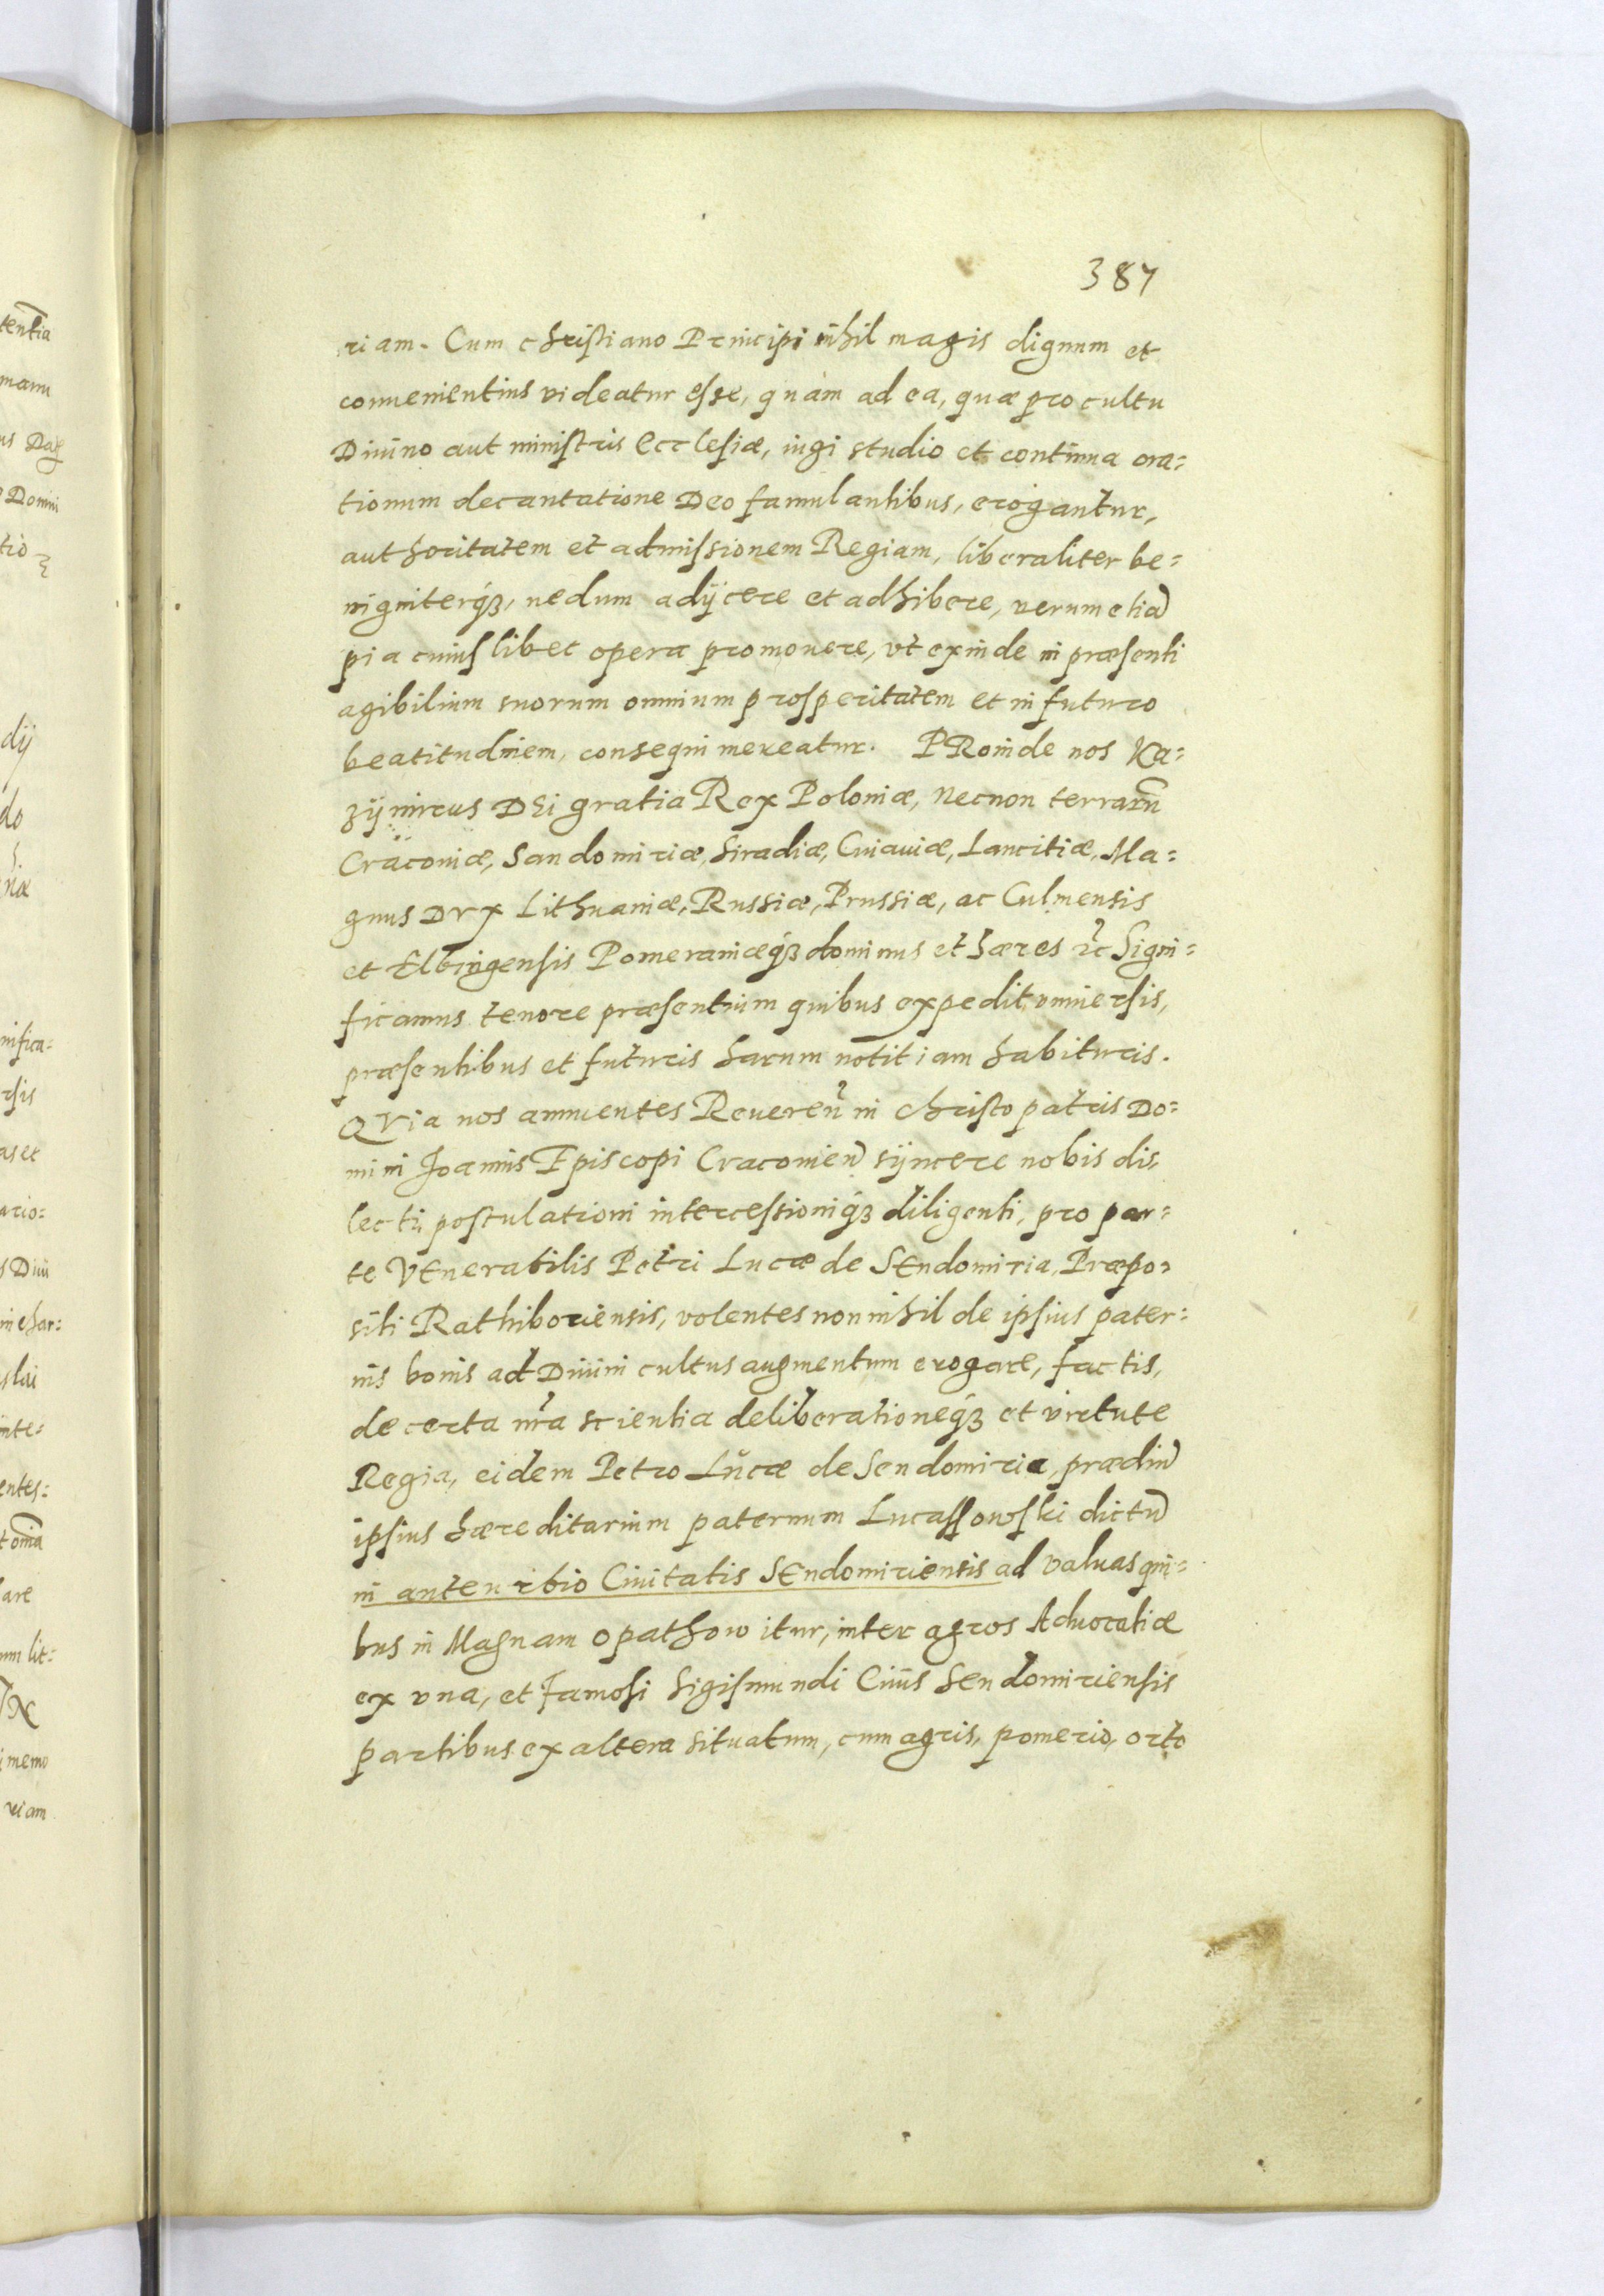 387
riam. Cum christiano Principi nihil magis dignum et
conuenientius videatur esse, quàm ad ea, quæ pro cultu
Diuino aut ministris Ecclesiæ, iugi studio et continua ora=
tionum decantatione Deo famulantibus, erogantur,
authoritatem et admissionem Regiam, liberaliter be=
nigniterq́ꝫ, nedum adijcere et adhibere, verumetiã
pia cuiuslibet opera promouere, vt exinde in præsenti
agibilium suorum omnium prosperitatem et in futuro
beatitudinem, consequi mereatur. PRoinde nos Ka=
zijmirus DEi gratia Rex Poloniæ, necnon terrarũ
Cracouiæ, Sandomiriæ, Siradiæ, Cuiauiæ, Lancitiæ, Ma=
gnus DVx Lithuaniæ, Russiæ, Prussiæ, ac Culmensis
et Elbingensis Pomeraniæq́ꝫ dominus et hæres ꝛc Signi=
ficamus tenore præsentium quibus expedit vniuersis,
præsentibus et futuris harum notitiam habituris.
QVia nos annuentes Reuereñ in christo patris Do=
mini Joannis Episcopi Cracouieñ sÿncere nobis di=
lecti, postulationi intercessioniq́ꝫ diligenti, pro par=
te VEnerabilis Petri Lucæ de SEndomiria, Præpo=
siti Rathiboriensis, volentes nonnihil de ipsius pater=
nis bonis ad Diuini cultus augmentum erogare, factis,
de certa nr̃a scientia deliberationeq́ꝫ et virtute
Regia, eidem Petro Lucæ de Sendomiria, prædiũ
ipsius hæreditarium paternum Lucassowski dictũ
in anteurbio Ciuitatis SEndomiriensis ad valuas qui=
bus in Magnam Opathow itur, inter agros Aduocatiæ
ex vna, et famosi Sigismundi Ciuis Sendomiriensis
partibus ex altera situatum, cum agris, pomerio, orto